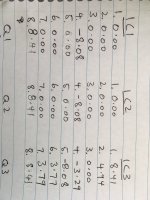 LC1 LC2 LC3
1. 0.00 1. 0.00 1. 8.41
2. 0.00 2. 0.00 2. 4.94
3. 0.00 3. 0.00 3. 0.00
4. -8.08 4. -8.08 4. -3.29
5. 0.00 5. 0.00 5. -8.08
6. 0.00 6. 0.00 6.
7. 0.00 7. 0.00 7. 3.77
8. 8.41 8. 8.41 8. 8.41
Q1 Q2 Q3